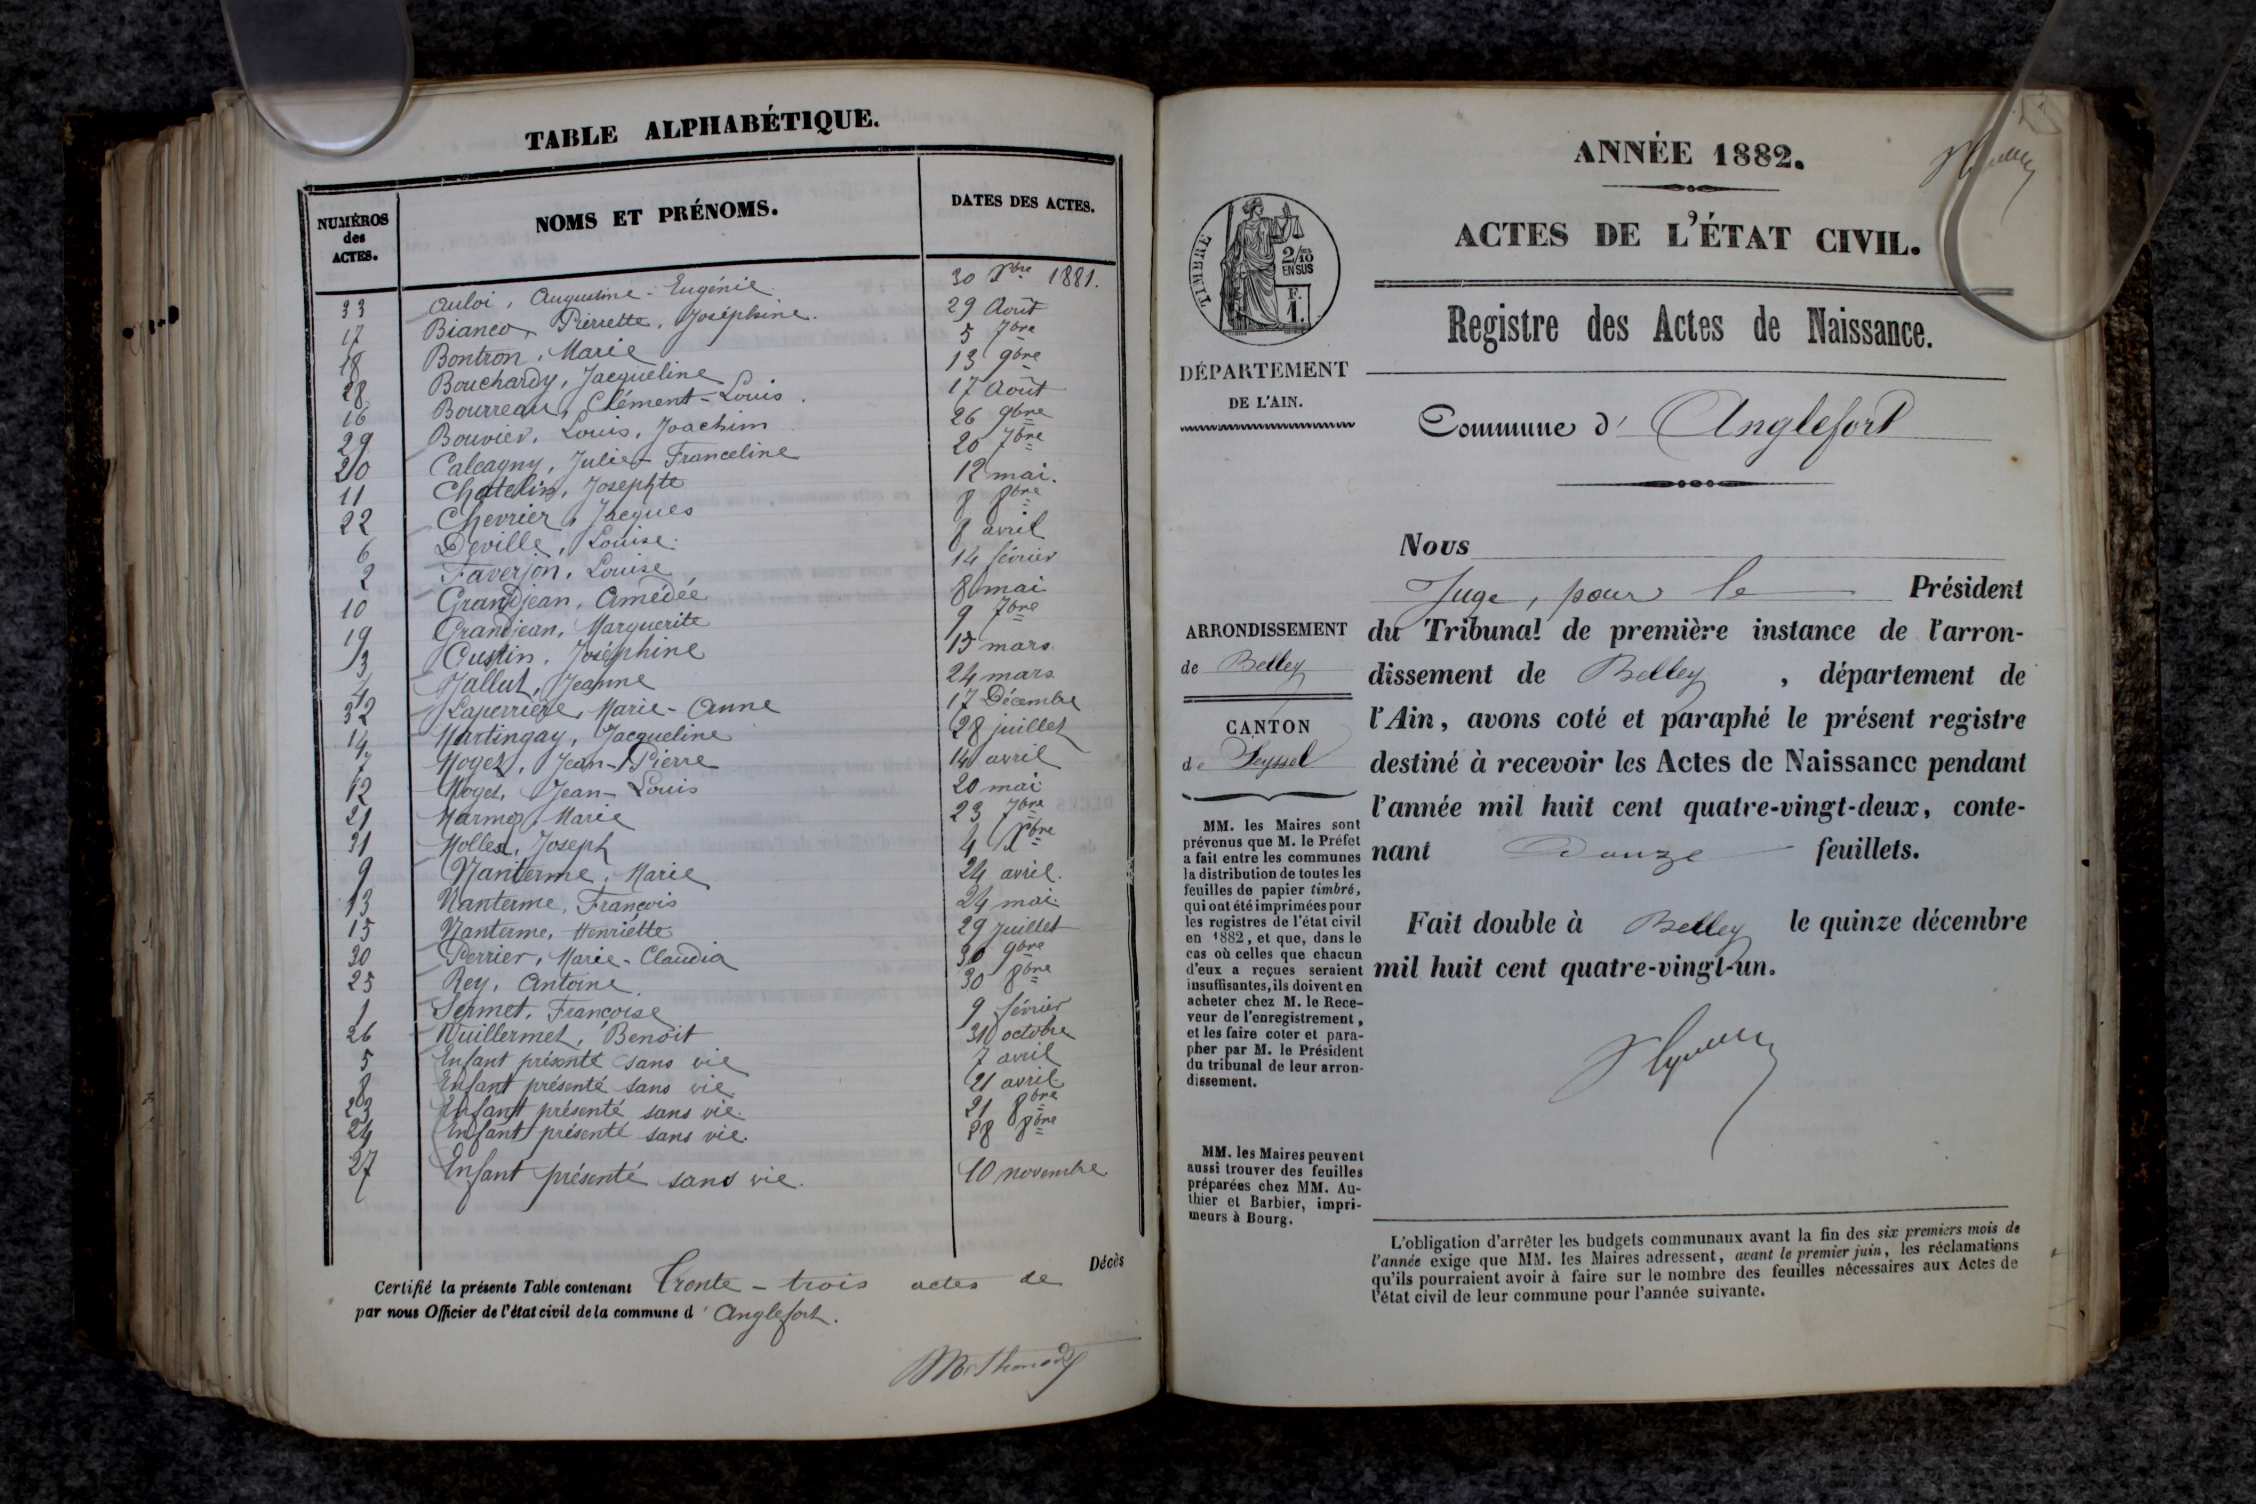 TABLE ALPHABÉTIQUE.
NUMÉROS des ACTES. NOMS ET PRÉNOMS. DATES DES ACTES.
33 Auloi, Augustine-Eugénie 30 Xbre 1881.
17 Bianco, Pierrette, Joséphine. 29 Août
18 Bontron, Marie 5 7bre
28 Bouchardy, Jacqueline 13 9bre
16 Bourreau, Clément-Louis. 17 Août
29 Bouvier, Louis, Joachim 26 9bre
20 Calcagny, Julie-Franceline 20 7bre
11 Chatelin, Josephte 12 mai.
22 Chevrier, Jacques 8 8bre
6 Deville, Louise. 8 avril
2 Faverjon, Louise 14 février
10 Grandjean, Amédée 8 mai
19 Grandjean, Marguerite 9 7bre
3 Gustin, Joséphine 15 mars
4 Jallut, Jeanne 24 mars
32 Laperrière, Marie-Anne 17 Décembre
14 Martingay, Jacqueline 28 juillet
7 Moget, Jean-Pierre 14 avril
12 Moget, Jean-Louis 20 mai
21 Marmod, Marie 23 7bre
31 Mollex, Joseph 4 Xbre
9 Nanterme, Marie 24 avril.
13 Nanterme, François 24 mai.
15 Nanterme, Henriette 29 Juillet
30 Perrier, Marie-Claudia 30 9bre
25 Rey, Antoine. 30 8bre
1 Sermet, Françoise 9 février
26 Vuillermet, Benoit 31 octobre
5 Enfant présenté sans vie 7 avril
8 Enfant présenté sans vie 21 avril
23 Enfant présenté sans vie. 21 8bre
24 Enfant présenté sans vie. 28 8bre
27 Enfant présenté sans vie. 10 novembre
Certifié la présente Table contenant Trente-trois actes de Décès
par nous Officier de l'état civil de la commune d'Anglefort.
ANNÉE 1882.
ACTES DE L'ÉTAT CIVIL.
TIMBRE
2/10 EN SUS
F. 1.
Registre des Actes de Naissance.
DÉPARTEMENT
DE L'AIN.
Commune d' Anglefort
Nous
Juge, pour le Président
du Tribunal de première instance de l'arron-
dissement de Belley, département de
l'Ain, avons coté et paraphé le présent registre
destiné à recevoir les Actes de Naissance pendant
l'année mil huit cent quatre-vingt-deux, conte-
nant Douze feuillets.
Fait double à Belley le quinze décembre
mil huit cent quatre-vingt-un.
ARRONDISSEMENT
de Belley
CANTON
de Seyssel
MM. les Maires sont
prévenus que M. le Préfet
a fait entre les communes
la distribution de toutes les
feuilles de papier timbré,
qui ont été imprimées pour
les registres de l'état civil
en 1882, et que, dans le
cas où celles que chacun
d'eux a reçues seraient
insuffisantes, ils doivent en
acheter chez M. le Rece-
veur de l'enregistrement,
et les faire coter et para-
pher par M. le Président
du tribunal de leur arron-
dissement.
MM. les Maires peuvent
aussi trouver des feuilles
préparées chez MM. Au-
thier et Barbier, impri-
meurs à Bourg.
L'obligation d'arrêter les budgets communaux avant la fin des six premiers mois de
l'année exige que MM. les Maires adressent, avant le premier juin, les réclamations
qu'ils pourraient avoir à faire sur le nombre des feuilles nécessaires aux Actes de
l'état civil de leur commune pour l'année suivante.